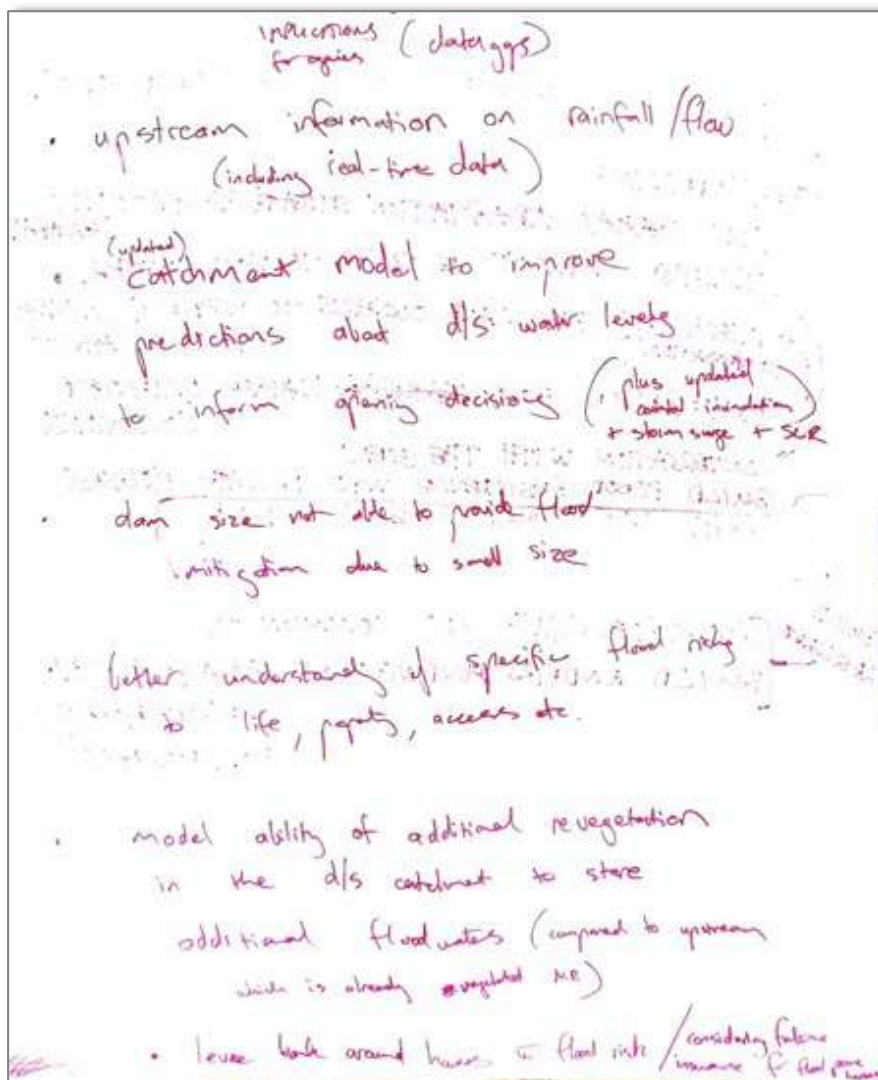 (data gaps)
for agencies
• upstream information on rainfall/flow
(including real-time data)
(updated)
• catchment model to improve
predictions about d/s water levels
to inform opening decisions (plus updated
coastal inundation)
+ storm surge + SLR
• dam size not able to provide flood
mitigation due to small size
• better understanding of specific flood risks
to life, property, access etc.
• model ability of additional revegetation
in the d/s catchment to store
additional floodwaters (compared to upstream
which is already vegetated NP)
• levee bank around houses flood risk / considering future
insurance for flood prone houses